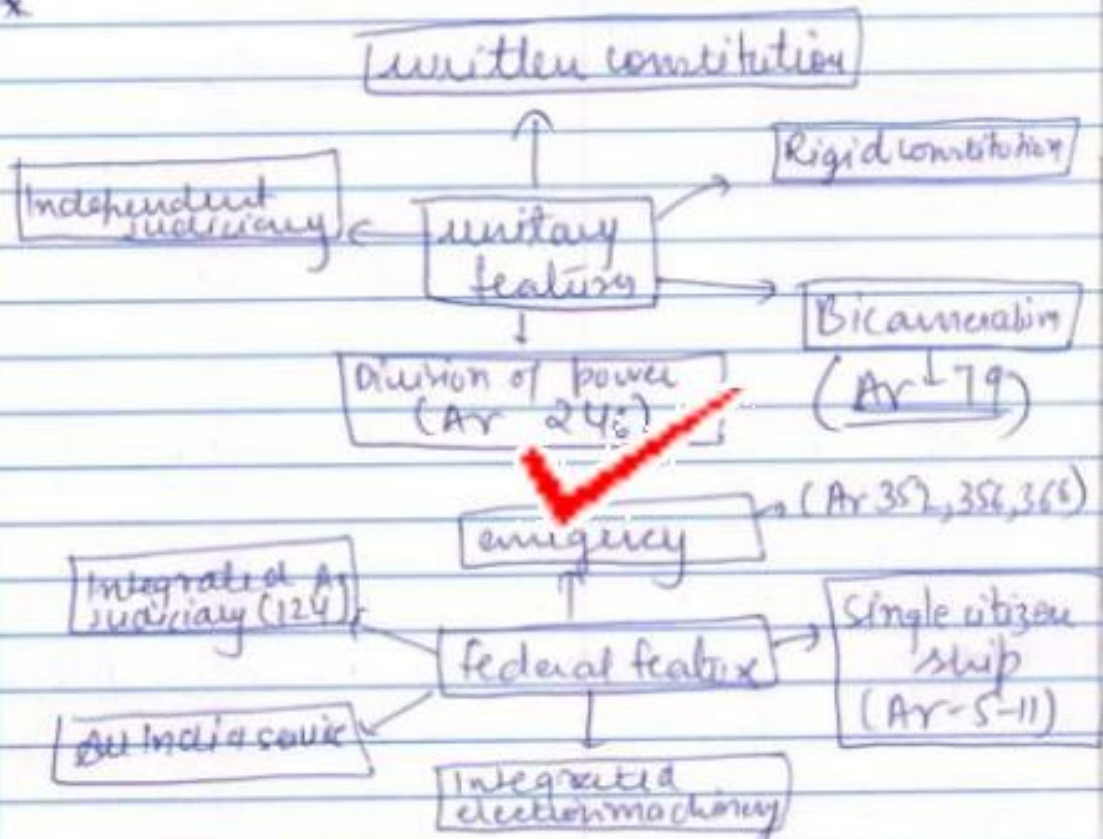 written constitution
Rigid constitution
Independent
judiciary
unitary
features
Bicameralism
(Ar - 79)
Division of power
(Ar 246)
emergency
(Ar 352, 356, 365)
Integrated
judiciary (124)
federal
Single citizen
ship
(Ar-5-11)
All India servic
Integrated
election machinery